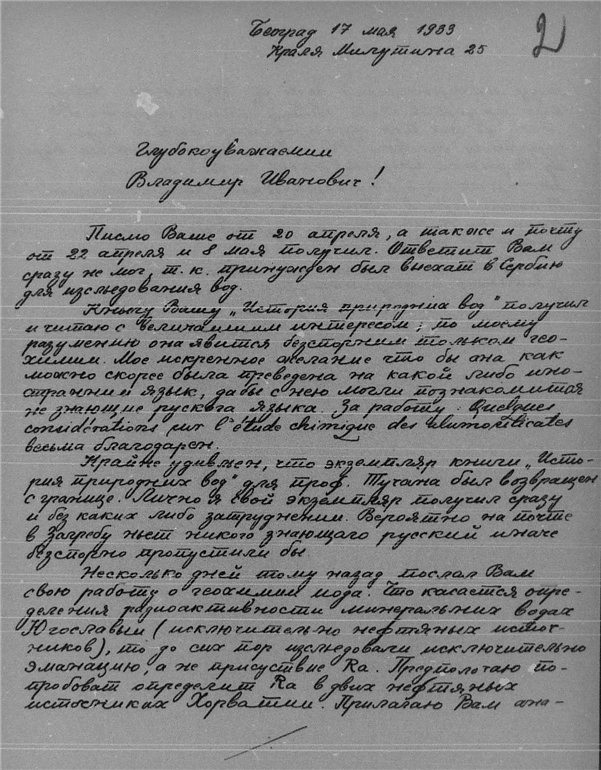 Београд 17 мая 1933
Краля Милутина 25
2
Глубокоуважаемии
Владимир Иванович!
Писмо Ваше от 20 апреля, а также и почту
от 22 апреля и 8 мая получил. Ответит Вам
сразу не мог, т.к. принужден был выехат в Сербию
для изследования вод.
Книгу Вашу „История природних вод" получил
и читаю с величаишим интересом; по моему
разумению она явится безспорним толчком гео-
химии. Мое искренное желание что бы она как
можно скорее была преведена на какой либо ино-
странний язык, дабы с нею могли познакомится
не знающие руского языка. За работу: Quelques
considérations sur l'étude chimique des alumosilicates
весьма благодарен.
Крайне удивлен, что экземпляр книги „Исто-
рия природних вод" для проф. Тучана был возвращен
с границе. Лично я свой экземпляр получил сразу
и без каких либо затруднении. Вероятно на почте
в Загребу нъет никого знающаго русский иначе
безспорно пропустили бы.
Несколько дней тому назад послал Вам
свою работу о геохимии иода. Что касается опре-
деления радиоактивности минеральних водах
Югославыи (исключително нефтяных источ-
ников), то до сих пор изследовали исключително
эманацию, а не присуствие Ra. Предполагаю по-
пробоват определит Ra в двих нефтяных
источниках Хорватии. Прилагаю Вам ана-